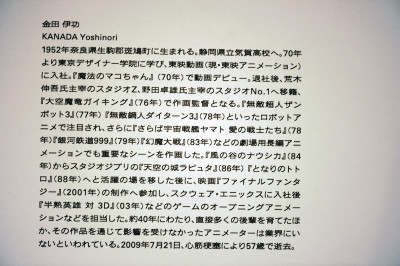 金田 伊功
KANADA Yoshinori
1952年奈良県生駒郡斑鳩町に生まれる。静岡県立気賀高校へ。70年
より東京デザイナー学院に学び、東映動画(現・東映アニメーション)
に入社。『魔法のマコちゃん』(70年)で動画デビュー。退社後、荒木
伸吾氏主宰のスタジオZ、野田卓雄氏主宰のスタジオNo.1へ移籍、
『大空魔竜ガイキング』(76年)で作画監督となる。『無敵超人ザン
ボット3』(77年)『無敵鋼人ダイターン3』(78年)といったロボットア
ニメで注目され、さらに『さらば宇宙戦艦ヤマト 愛の戦士たち』(78
年)『銀河鉄道999』(79年)『幻魔大戦』(83年)などの劇場用長編アニ
メーションでも重要なシーンを作画した。『風の谷のナウシカ』(84
年)からスタジオジブリの『天空の城ラピュタ』(86年)『となりのト
トロ』(88年)へと活躍の場を移した後に、映画『ファイナルファンタ
ジー』(2001年)の制作へ参加し、スクウェア・エニックスに入社後
『半熟英雄 対 3D』(03年)などのゲームのオープニングアニメー
ションなどを担当した。約40年にわたり、直接多くの後輩を育てたほ
か、その作品を通じて影響を受けなかったアニメーターは業界にい
ないといわれている。2009年7月21日、心筋梗塞により57歳で逝去。